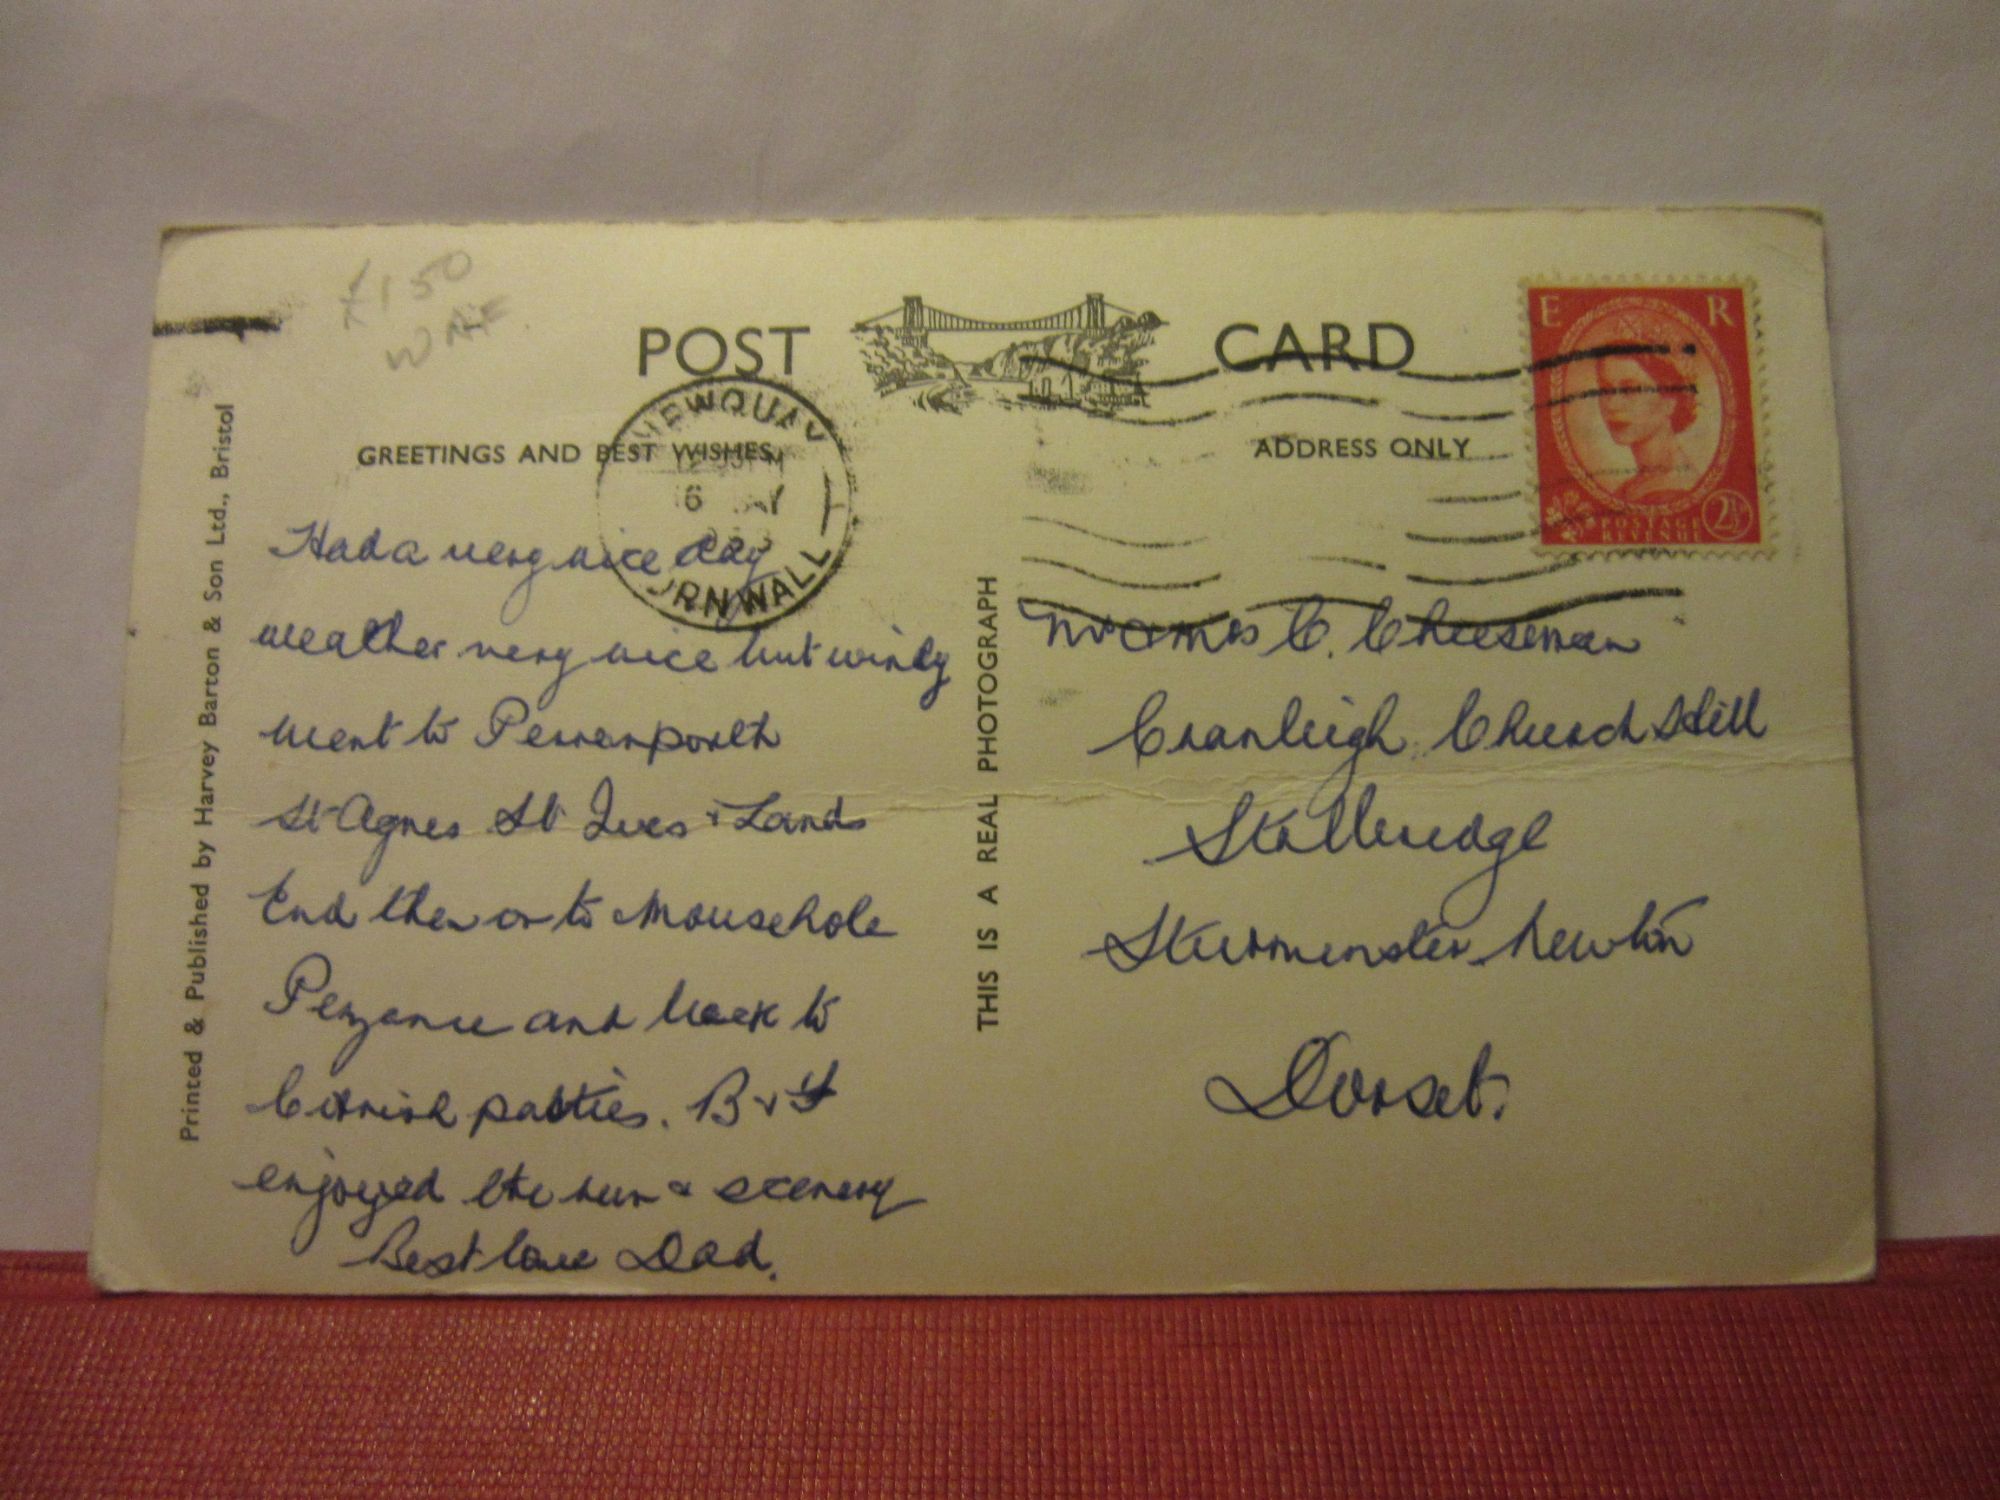 £1.50
POST CARD
GREETINGS AND BEST WISHES
ADDRESS ONLY
E R
POSTAGE
REVENUE
2½
NEWQUAY
6
RNWALL
Printed & Published by Harvey Barton & Son Ltd., Bristol
THIS IS A REAL PHOTOGRAPH
Had a very nice day
weather very nice but windy
went to Perranporth
St Agnes St Ives & Lands
End then on to Mousehole
Penzance and back to
Cornish pasties. B &
enjoyed the sun & scenery
Best love Dad.
Mr & Mrs C. Cheeseman
Cranleigh Church Hill
Stalbridge
Sturminster Newton
Dorset.